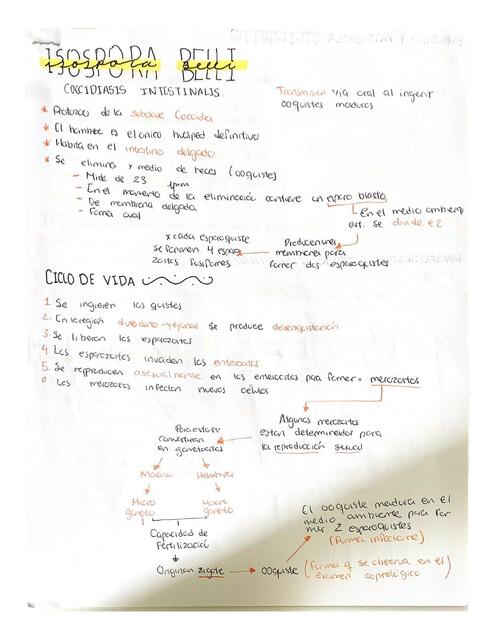 ISOSPORA BELLI
isospora belli
COCCIDIASIS INTESTINALIS
Transmisión vía oral al ingerir
ooquistes maduros
* Protozoo de la subclase Coccidia
* El hombre es el único husped definitivo
* Habita en el intestino delgado
* Se elimina x medio de heces (ooquiste)
- Mide de 23
- En el momento de la eliminación contiene un esporoblasto
- De membrana delgada
- Forma oval
En el medio ambien
ext. se divide e 2
Producen una
membrana para
formar dos esporoquistes
x cada esporoquiste
se forman 4 espo
zoitos fusiformes
CICLO DE VIDA
1. Se ingieren los quistes
2. En la región duodeno-yeyunal se produce desenquistación
3. Se liberan los esporozoitos
4. Los esporozoitos invaden los enterocitos
5. Se reproducen asexualmente en los enterocitos para formar = merozoitos
Los merozoitos infectan nuevas células
Algunos merozoitos
estan determinados para
la reproducción sexual
Para esto se
convertiran
en gametocitos
Macho Hembra
Micro
gameto
Macro
gameto
Capacidad de
Fertilización
Originan zigote
ooquiste
(forma q se observa en el
examen coprológico)
El ooquiste madura en el
medio ambiente para for
mar 2 esporoquistes
(forma infectante)